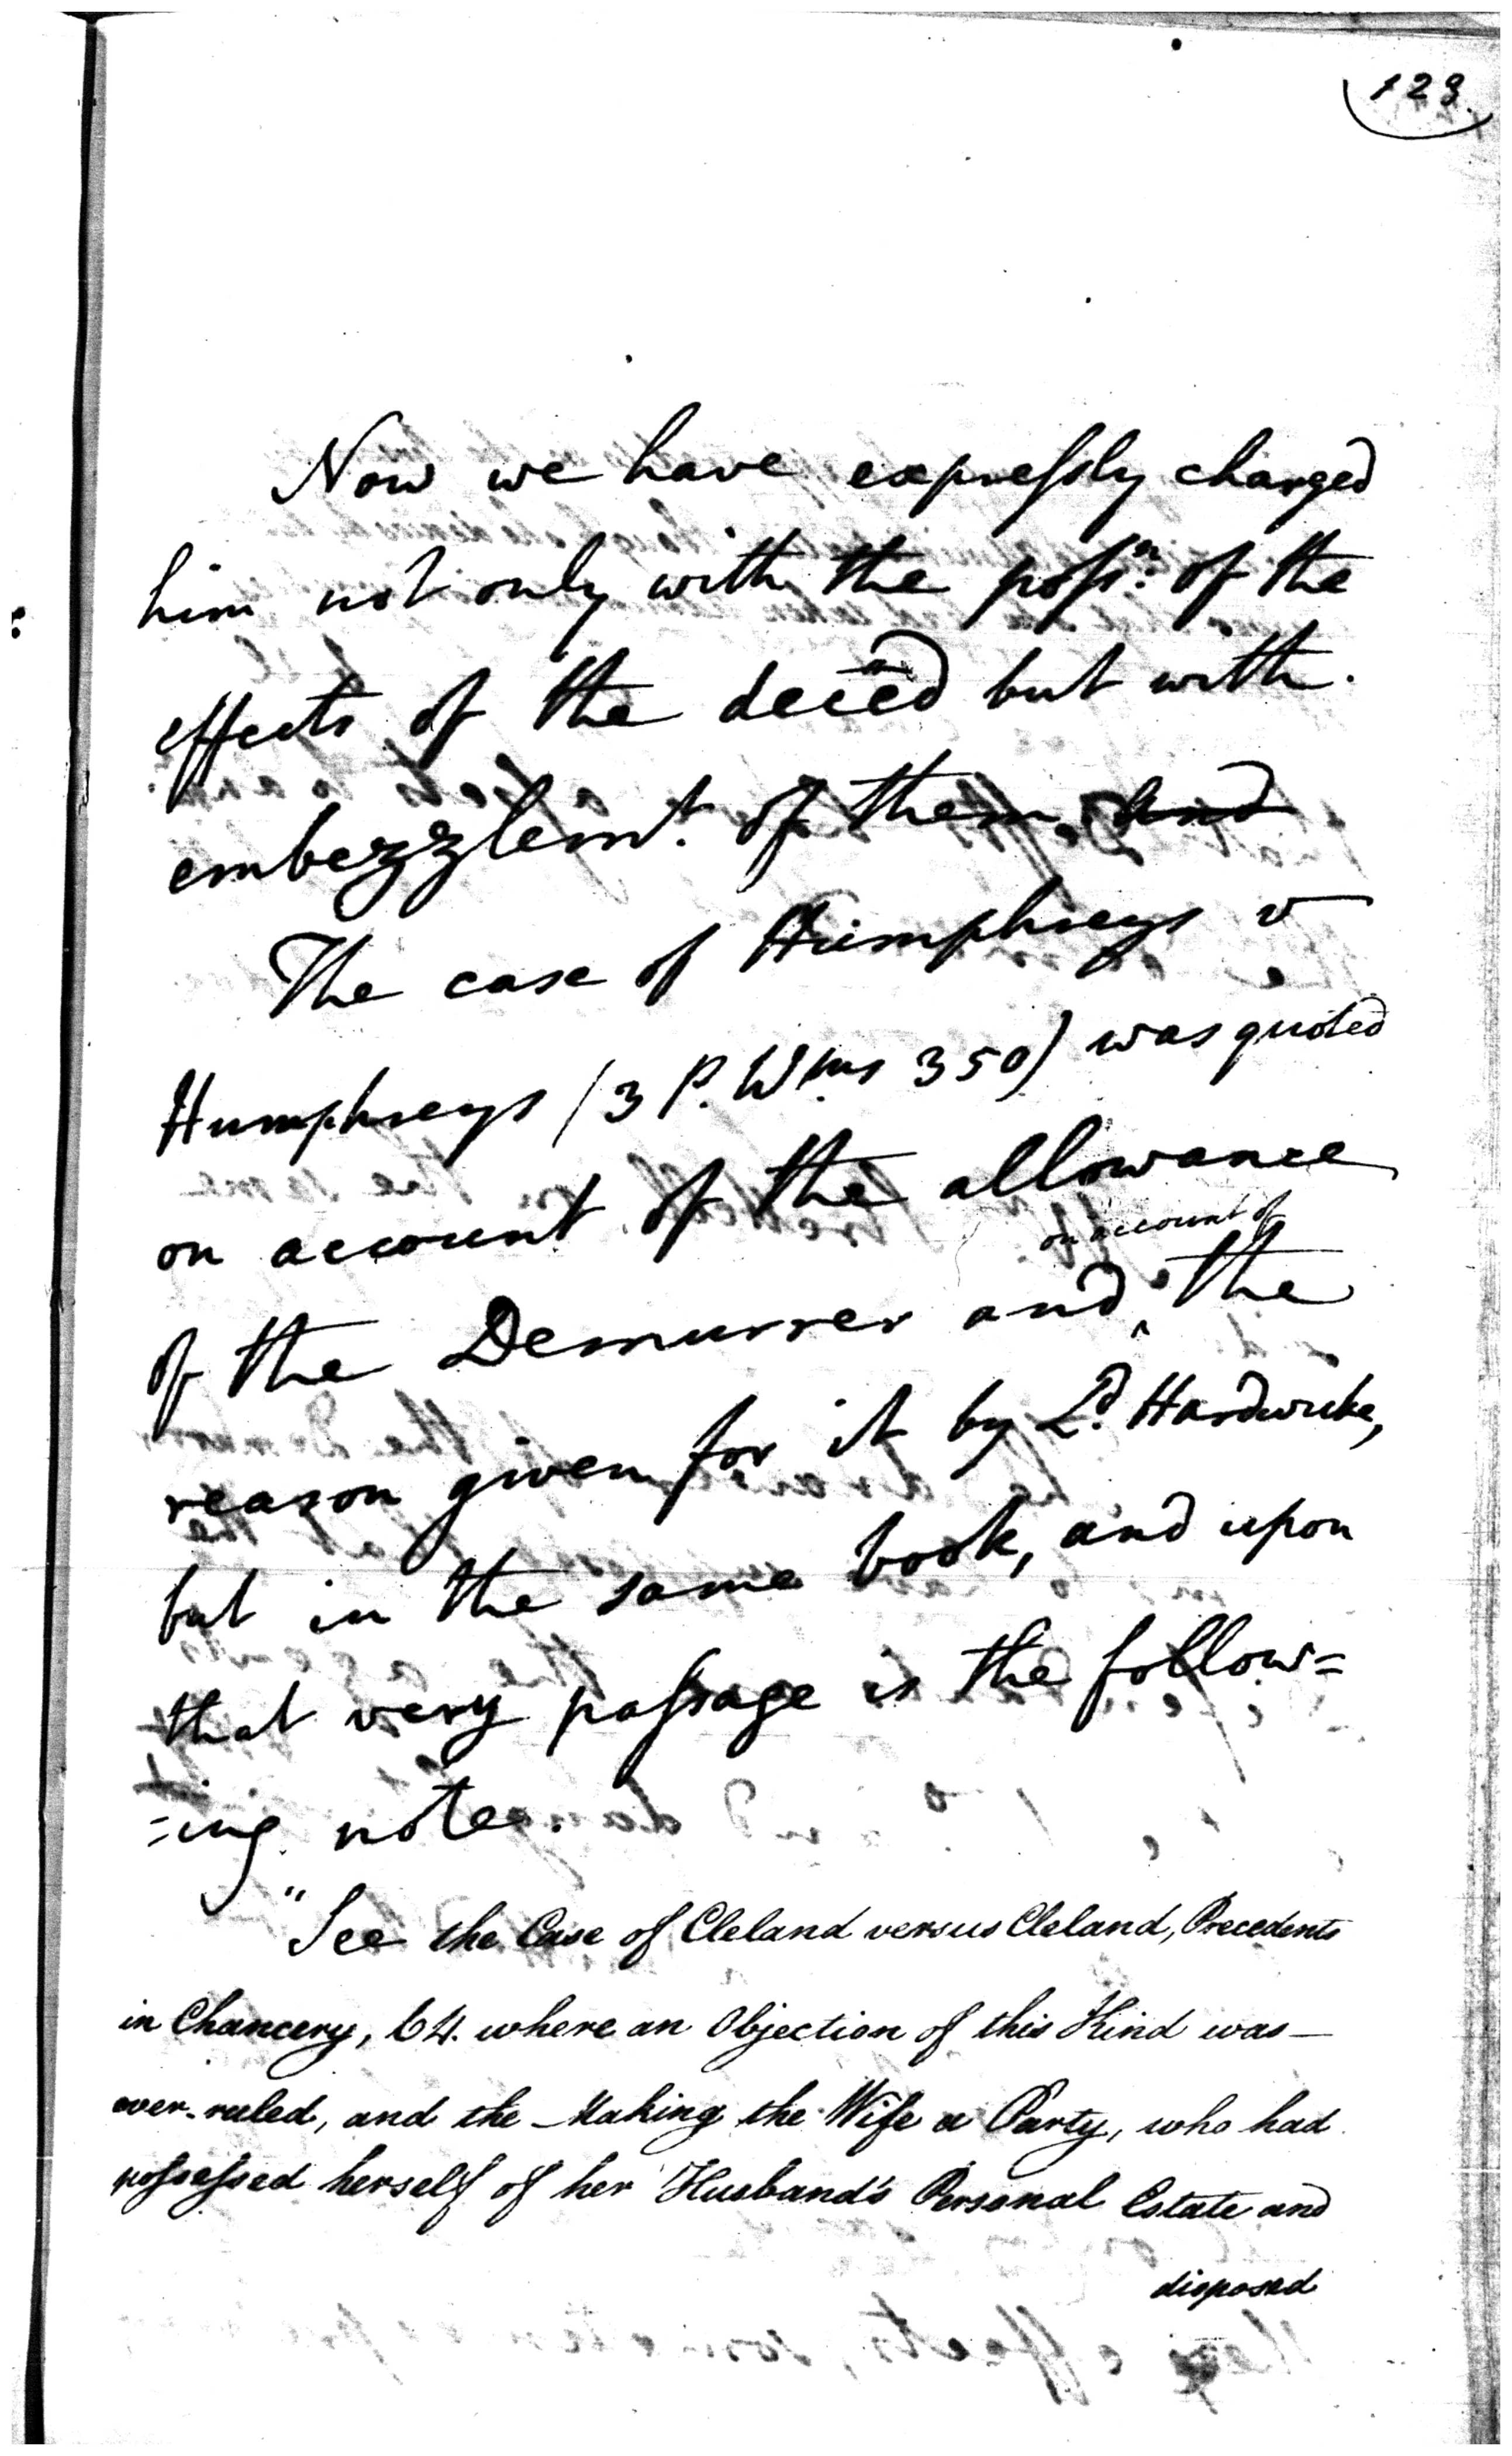 123.
Now we have expressly charged
him not only with the possn. of the
effects of the deceēd but with
embezzlemt. of them. and
The case of Humphreys v
Humphreys (3 P. Wms 350) was quoted
on account of the allowance
on account of
of the Demurrer and ‸ the
reason given for it by Ld. Hardwicke,
but in the same book, and upon
that very passage is the follow=
=ing note.
"See the Case of Cleland versus Cleland, Precedents
in Chancery, 64. where an Objection of this Kind was —
over-ruled, and the Making the Wife a Party, who had
possessed herself of her Husband's Personal Estate and
disposed